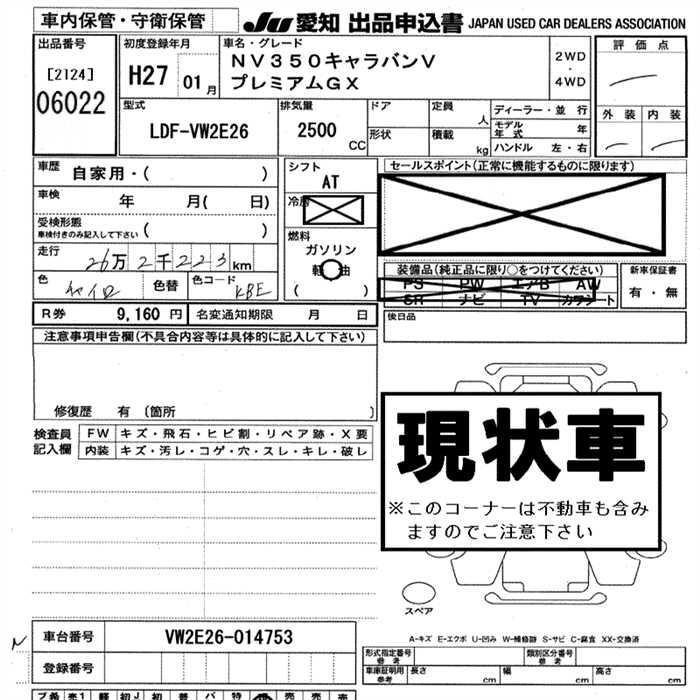 車内保管・守衛保管
JU 愛知 出品申込書 JAPAN USED CAR DEALERS ASSOCIATION
出品番号
[2124]
06022
初度登録年月
H27 01 月
車名・グレード
NV350キャラバンV
プレミアムGX
2WD
・
4WD
評価点
外装 内装
型式
LDF-VW2E26
排気量
2500
CC
ドア
形状
定員
人
積載
kg
ディーラー・並行
モデル
年式 年
ハンドル 左・右
車歴
自家用・( )
車検
年 月( 日)
受検形態
車検付きのみ記入して下さい ( )
走行
26万2千223km
色 色替 色コード
KBE
シフト
AT
燃料
ガソリン
軽油
( )
セールスポイント(正常に機能するものに限ります)
装備品(純正品に限り○をつけてください)
PS PW エアB AW
SR ナビ TV カワシート
新車保証書
有・無
R券 9,160 円 名変通知期限 月 日
後日品
注意事項申告欄(不具合内容等は具体的に記入して下さい)
修復歴 有 〔箇所 〕
検査員
記入欄
FW キズ・飛石・ヒビ割・リペア跡・X要
内装 キズ・汚レ・コゲ・穴・スレ・キレ・破レ
現状車
※このコーナーは不動車も含み
ますのでご注意下さい
スペア
A-キズ E-エクボ U-凹み W-補修跡 S-サビ C-腐食 XX-交換済
N
車台番号 VW2E26-014753
登録番号
形式指定番号
参考
類別区分番号
参考
車庫証明用
参考
長さ cm 幅 cm 高さ cm